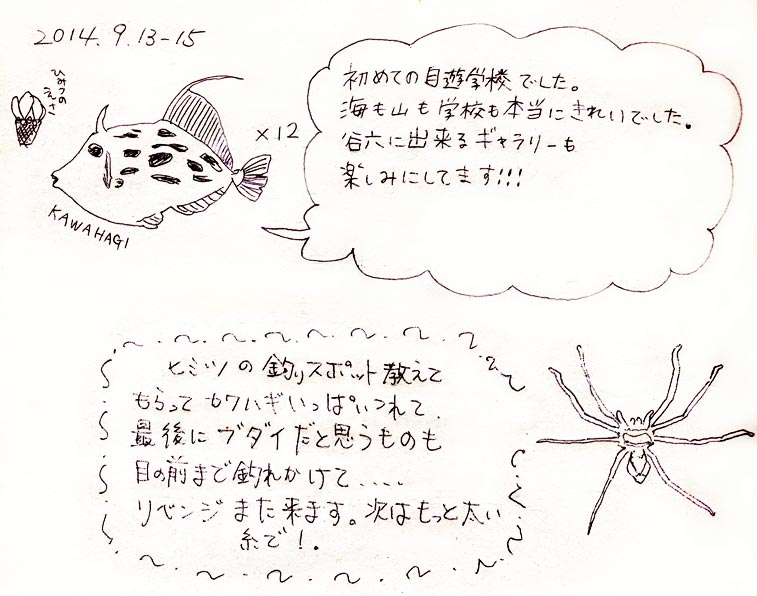 2014.9.13-15
ひみつの
えさ
×12
KAWAHAGI
初めての自遊学校でした。
海も山も学校も本当にきれいでした。
谷六に出来るギャラリーも
楽しみにしてます!!!
ヒミツの釣りスポット教えて
もらってカワハギいっぱいつれて、
最後にブダイだと思うものも
目の前まで釣れかけて....
リベンジまた来ます。次はもっと太い
糸で!.